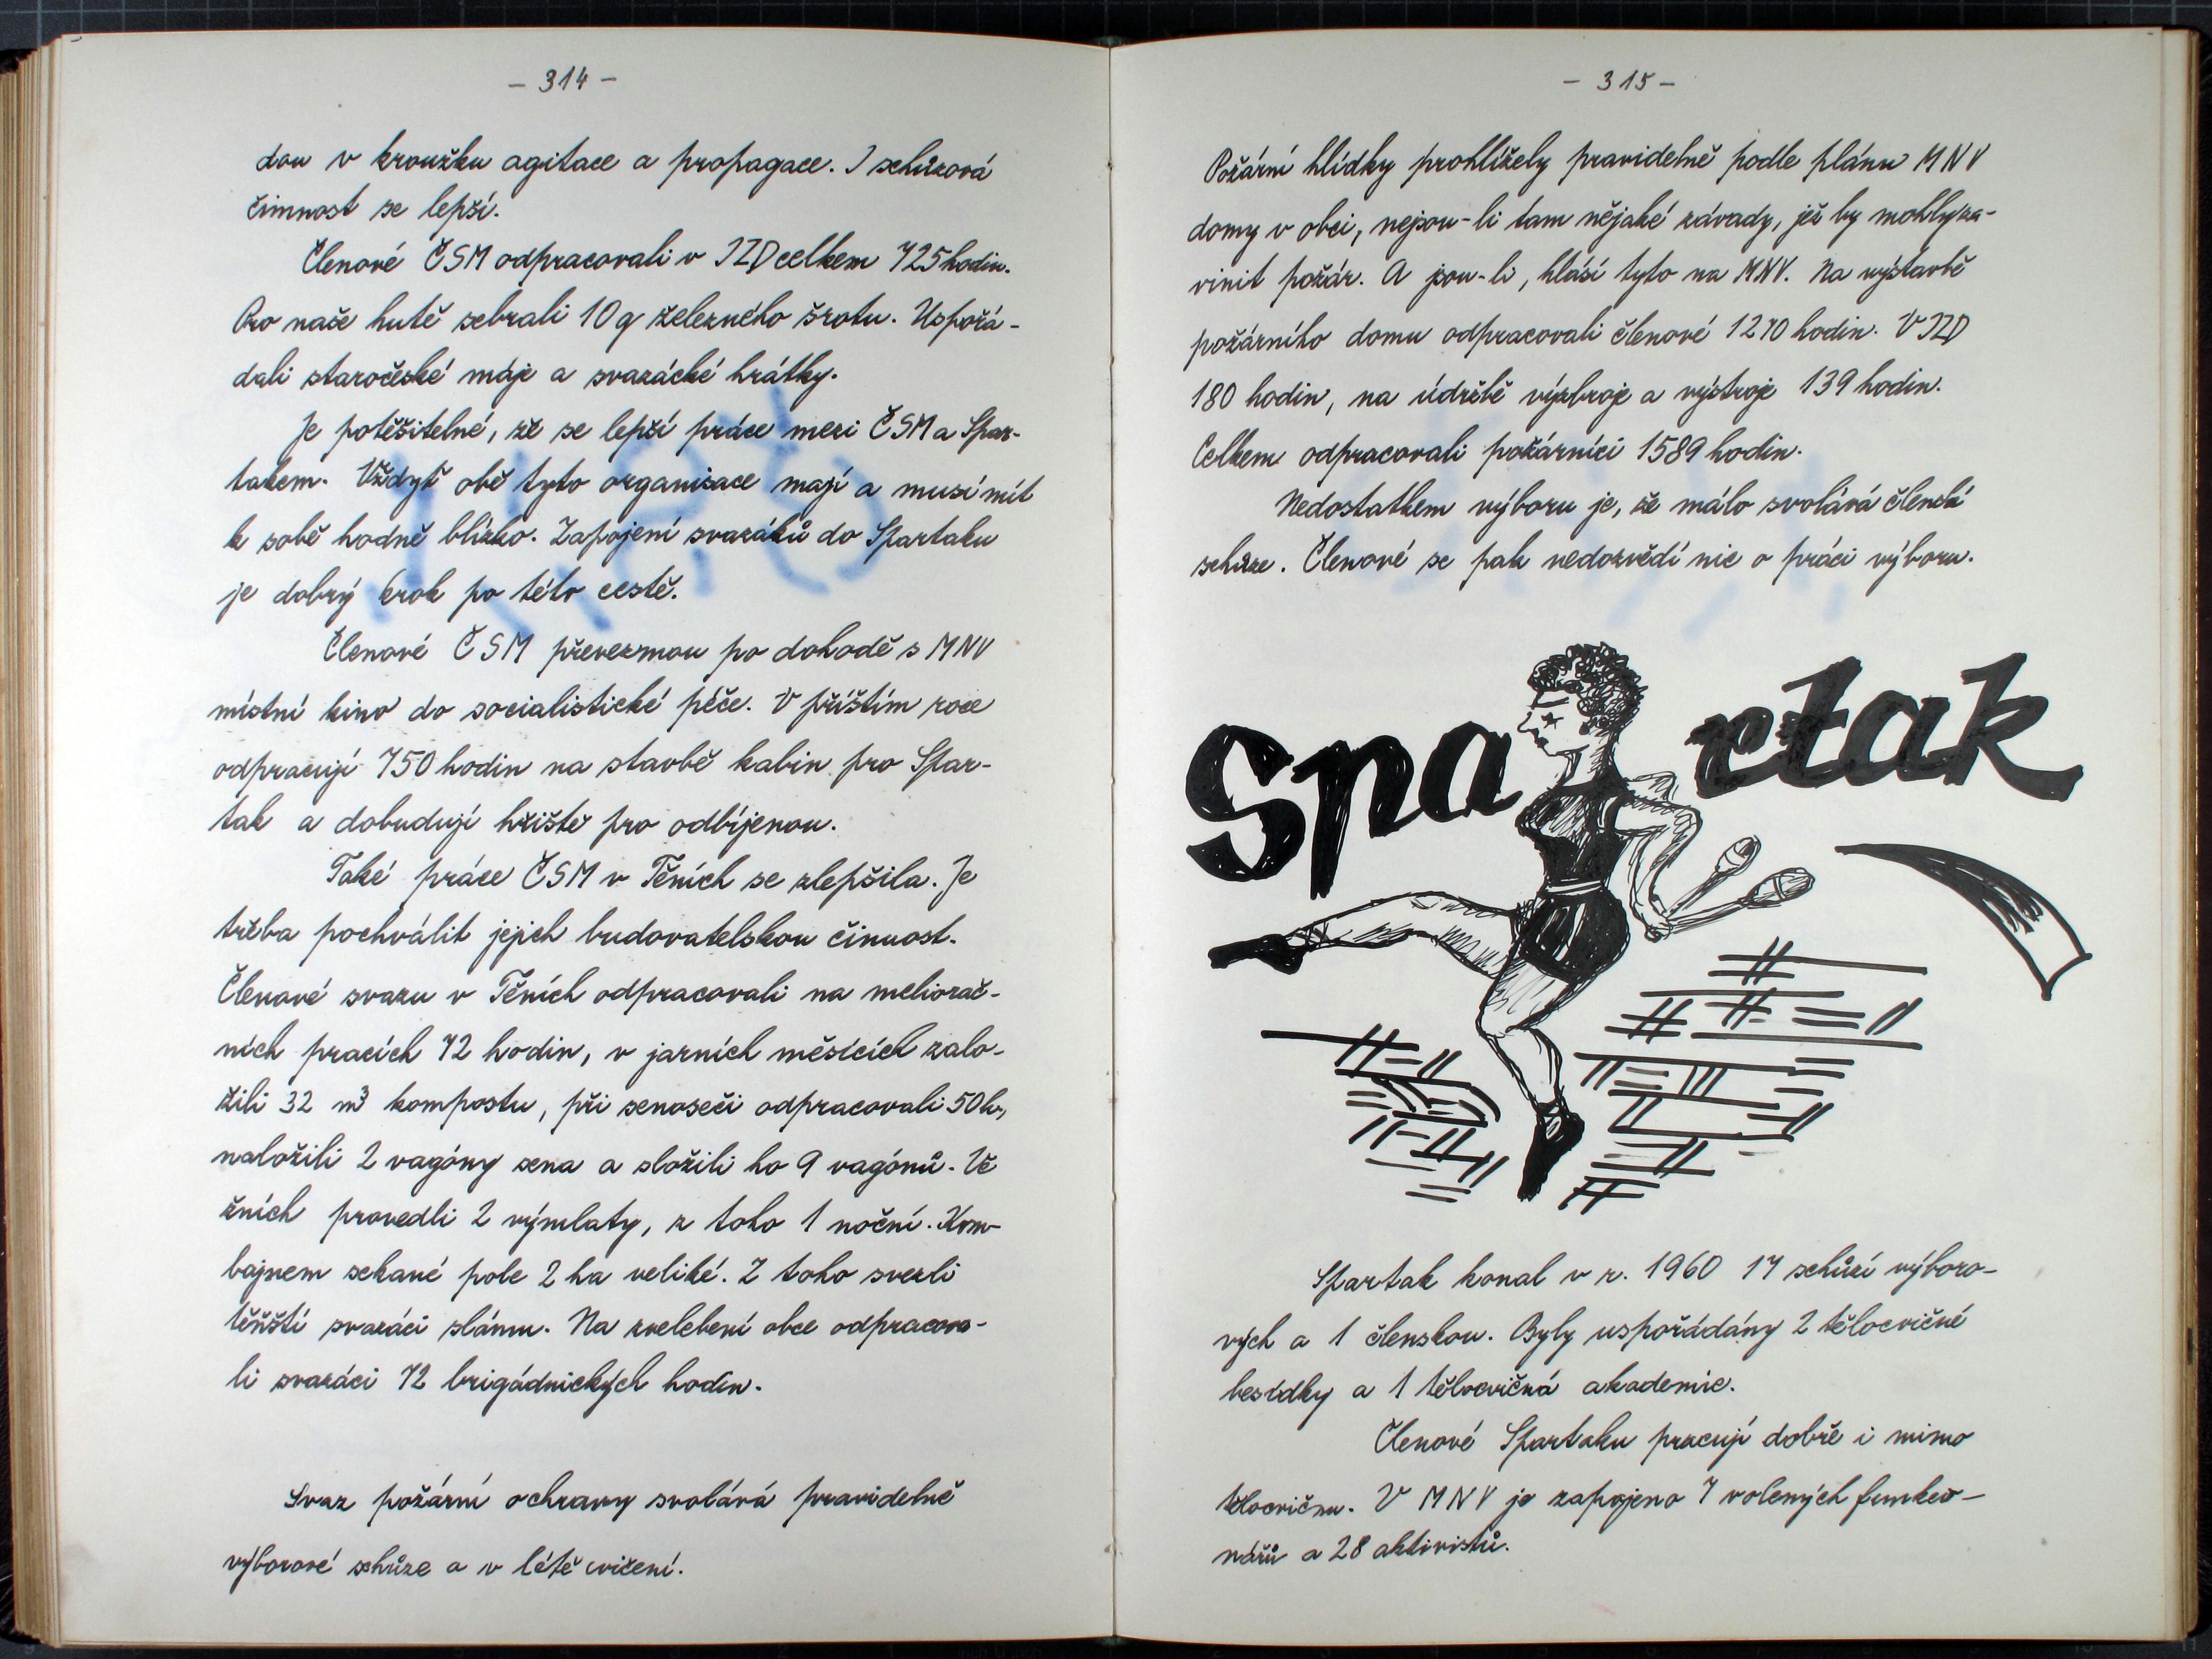 - 314 -
dou v kroužku agitace a propagace. I schůzová
činnost se lepší.
Členové ČSM odpracovali v JZD celkem 725 hodin.
Pro naše hutě sebrali 10 q železného šrotu. Uspořá-
dali staročeské máje a svazácké hrátky.
Je potěšitelné, že se lepší práce mezi ČSM a Spar-
takem. Vždyť obě tyto organisace mají a musí mít
k sobě hodně blízko. Zapojení svazáků do Spartaku
je dobrý krok po této cestě.
Členové ČSM převezmou po dohodě s MNV
místní kino do socialistické péče. V příštím roce
odpracují 750 hodin na stavbě kabin pro Spar-
tak a dobudují hřiště pro odbíjenou.
Také práce ČSM v Těních se zlepšila. Je
třeba pochválit jejich budovatelskou činnost.
Členové svazu v Těních odpracovali na meliorač-
ních pracích 72 hodin, v jarních měsících zalo-
žili 32 m³ kompostu, při senoseči odpracovali 50 h.,
naložili 2 vagóny sena a složili ho 9 vagónů. Ve
žních provedli 2 výmlaty, z toho 1 noční. Kom-
bajnem sekané pole 2 ha veliké. Z toho svezli
těňští svazáci slámu. Na zvelebení obce odpracova-
li svazáci 72 brigádnických hodin.
Svaz požární ochrany svolává pravidelně
výborové schůze a v létě cvičení.
- 315 -
Požární hlídky prohlížely pravidelně podle plánu MNV
domy v obci, nejsou-li tam nějaké závady, jež by mohly za-
vinit požár. A jsou-li, hlásí tyto na MNV. Na výstavbě
požárního domu odpracovali členové 1270 hodin. V JZD
180 hodin, na údržbě výzbroje a výstroje 139 hodin.
Celkem odpracovali požárníci 1589 hodin.
Nedostatkem výboru je, že málo svolává členské
schůze. Členové se pak nedozvědí nic o práci výboru.
Spartak
Spartak konal v r. 1960 17 schůzí výboro-
vých a 1 členskou. Byly uspořádány 2 tělocvičné
besídky a 1 tělocvičná akademie.
Členové Spartaku pracují dobře i mimo
tělocvičnu. V MNV je zapojeno 7 volených funkcio-
nářů a 28 aktivistů.